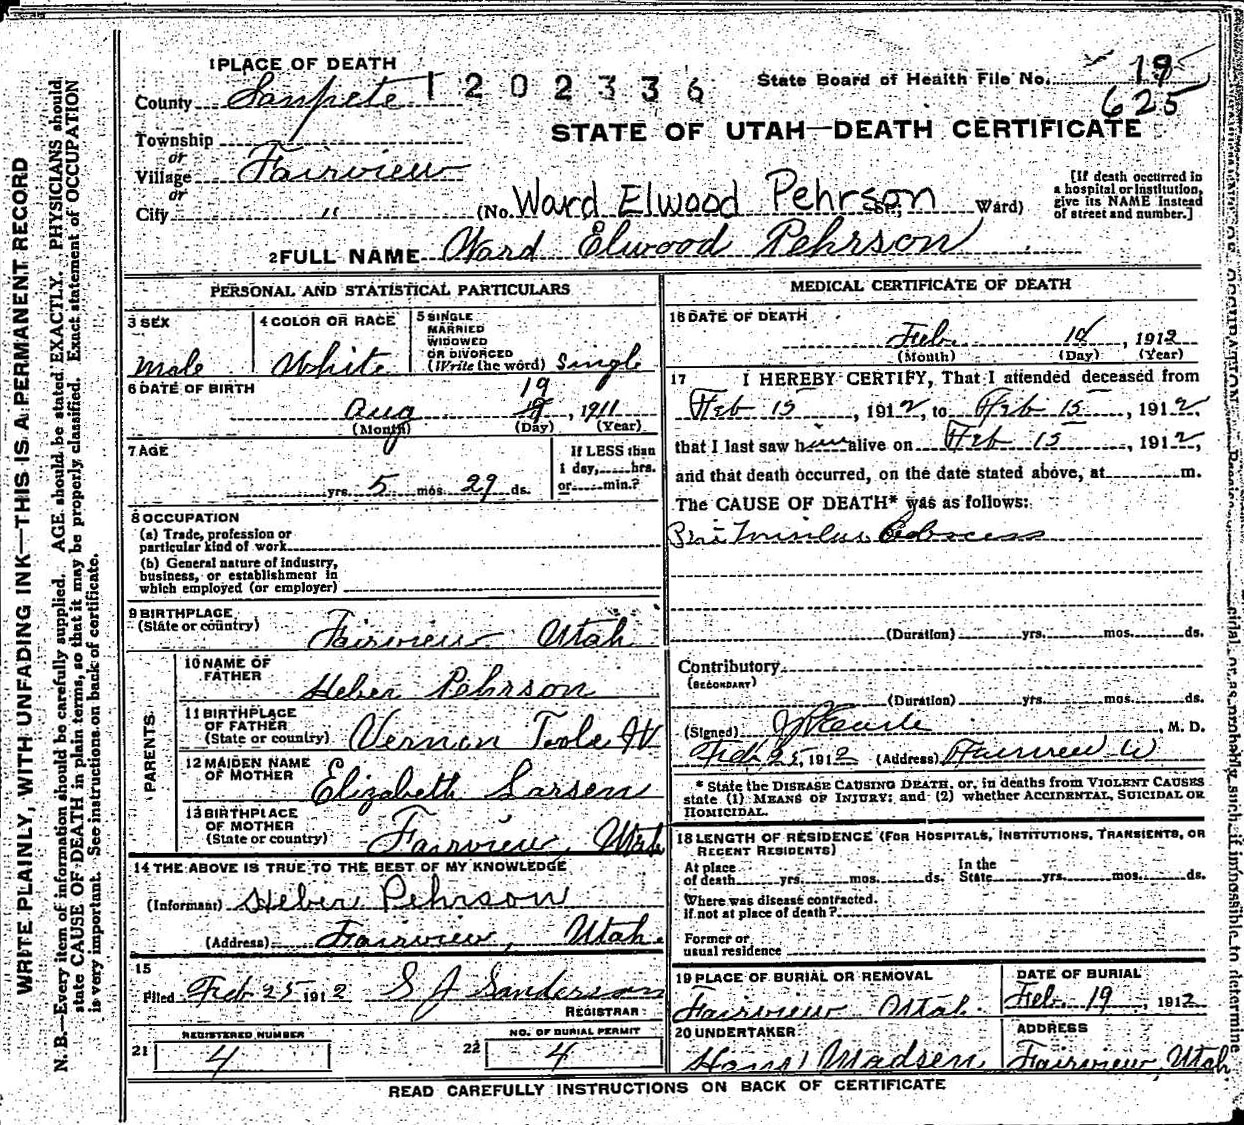 1 PLACE OF DEATH
County Sanpete
1202336
State Board of Health File No. 19
625
STATE OF UTAH—DEATH CERTIFICATE
Township
or
Village Fairview
or
City "
(No. Ward Elwood Pehrson St; Ward)
[If death occurred in
a hospital or institution,
give its NAME instead
of street and number.]
2 FULL NAME Ward Elwood Pehrson
PERSONAL AND STATISTICAL PARTICULARS
3 SEX
Male
4 COLOR OR RACE
White
5 SINGLE
MARRIED
WIDOWED
OR DIVORCED
(Write the word) Single
6 DATE OF BIRTH
19
Aug , 1911
(Month) (Day) (Year)
7 AGE
yrs. 5 mos. 29 ds.
If LESS than
1 day, hrs.
or min.?
8 OCCUPATION
(a) Trade, profession or
particular kind of work
(b) General nature of industry,
business, or establishment in
which employed (or employer)
9 BIRTHPLACE
(State or country)
Fairview Utah
PARENTS
10 NAME OF
FATHER
Heber Pehrson
11 BIRTHPLACE
OF FATHER
(State or country) Vernon Toole
12 MAIDEN NAME
OF MOTHER
Elizabeth Larsen
13 BIRTHPLACE
OF MOTHER
(State or country) Fairview, Utah
14 THE ABOVE IS TRUE TO THE BEST OF MY KNOWLEDGE
(Informant) Heber Pehrson
(Address) Fairview, Utah.
15
Filed Feb 25 1912 S J Sanderson
REGISTRAR
REGISTERED NUMBER
21 4
NO. OF BURIAL PERMIT
22 4
MEDICAL CERTIFICATE OF DEATH
16 DATE OF DEATH
Feb. , 1912
(Month) (Day) (Year)
17 I HEREBY CERTIFY, That I attended deceased from
Feb 15, 1912, to Feb 15, 1912,
that I last saw him alive on Feb 15, 1912,
and that death occurred, on the date stated above, at m.
The CAUSE OF DEATH* was as follows:
Abscess
(Duration) yrs. mos. ds.
Contributory
(SECONDARY)
(Duration) yrs. mos. ds.
(Signed) , M. D.
Feb 25, 1912 (Address) Fairview U
* State the DISEASE CAUSING DEATH, or, in deaths from VIOLENT CAUSES
state (1) MEANS OF INJURY; and (2) whether ACCIDENTAL, SUICIDAL OR
HOMICIDAL.
18 LENGTH OF RESIDENCE (FOR HOSPITALS, INSTITUTIONS, TRANSIENTS, OR
RECENT RESIDENTS)
At place
of death yrs. mos. ds.
In the
State yrs. mos. ds.
Where was disease contracted.
if not at place of death?
Former or
usual residence
19 PLACE OF BURIAL OR REMOVAL
Fairview Utah.
DATE OF BURIAL
Feb. 19, 1912
20 UNDERTAKER
Hans Madsen
ADDRESS
Fairview, Utah
READ CAREFULLY INSTRUCTIONS ON BACK OF CERTIFICATE
WRITE PLAINLY, WITH UNFADING INK—THIS IS A PERMANENT RECORD
N. B.—Every item of information should be carefully supplied. AGE should be stated EXACTLY. PHYSICIANS should
state CAUSE OF DEATH in plain terms, so that it may be properly classified. Exact statement of OCCUPATION
is very important. See instructions on back of certificate.